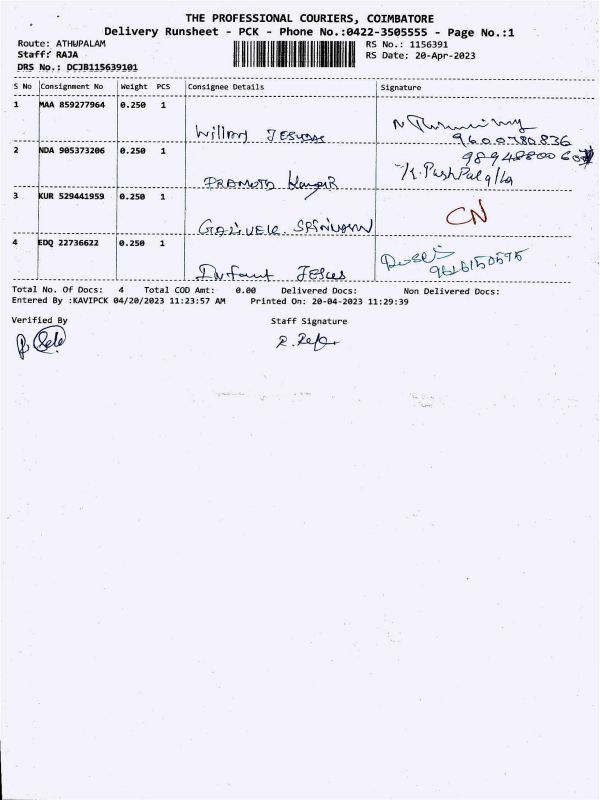 THE PROFESSIONAL COURIERS, COIMBATORE
Delivery Runsheet - PCK - Phone No.:0422-3505555 - Page No.:1
Route: ATHUPALAM RS No.: 1156391
Staff: RAJA RS Date: 20-Apr-2023
DRS No.: DCJB115639101
S No Consignment No Weight PCS Consignee Details Signature
1 MAA 859277964 0.250 1
9600780836
2 NDA 905373206 0.250 1
PRAMOTH
3 KUR 529441959 0.250 1
CN
4 EDQ 22736622 0.250 1
Infant
Total No. Of Docs: 4 Total COD Amt: 0.00 Delivered Docs: Non Delivered Docs:
Entered By :KAVIPCK 04/20/2023 11:23:57 AM Printed On: 20-04-2023 11:29:39
Verified By Staff Signature